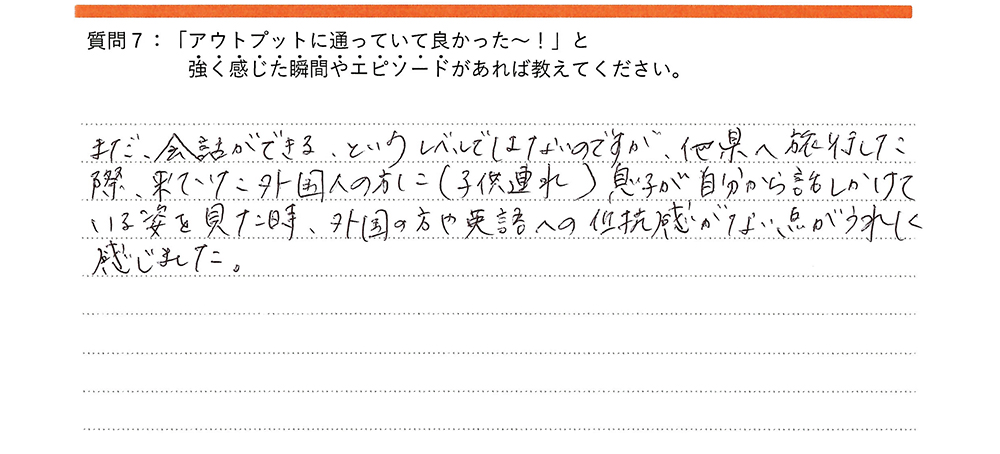 質問７：「アウトプットに通っていて良かった～！」と
強く感じた瞬間やエピソードがあれば教えてください。
まだ、会話ができる、というレベルではないのですが、他県へ旅行した
際、来ていた外国人の方に（子供連れ）息子が自分から話しかけて
いる姿を見た時、外国の方や英語への抵抗感がない点がうれしく
感じました。